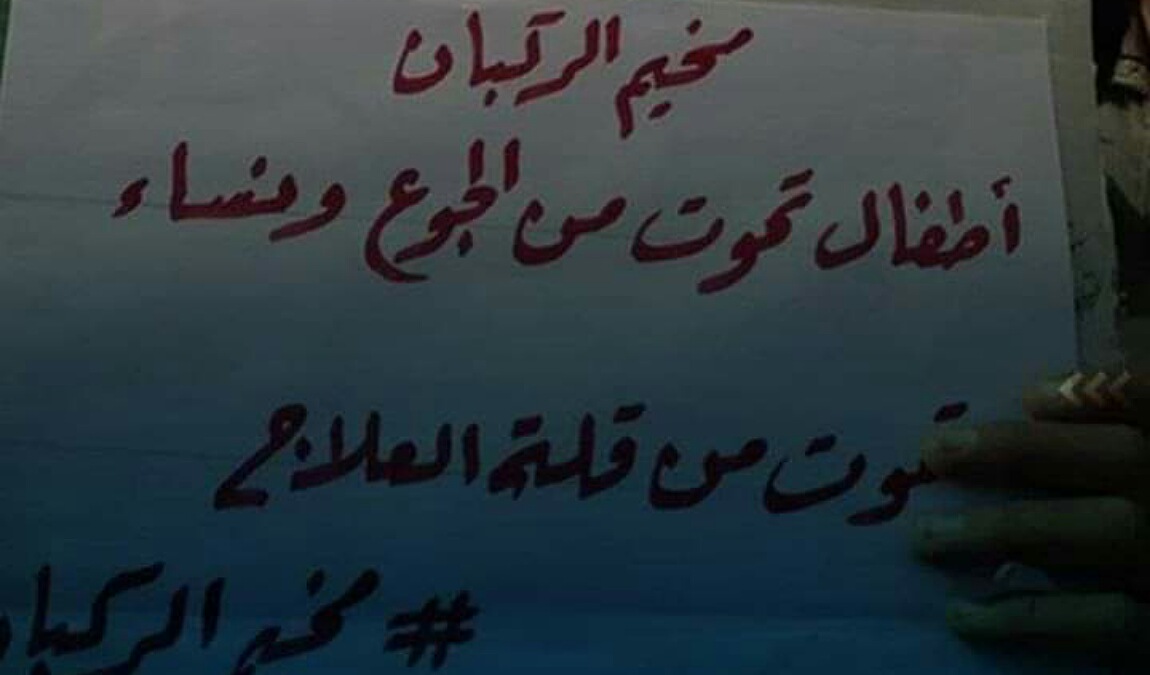 مخيم الركبان
أطفال تموت من الجوع ونساء
تموت من قلة العلاج
# مخيم الركبان